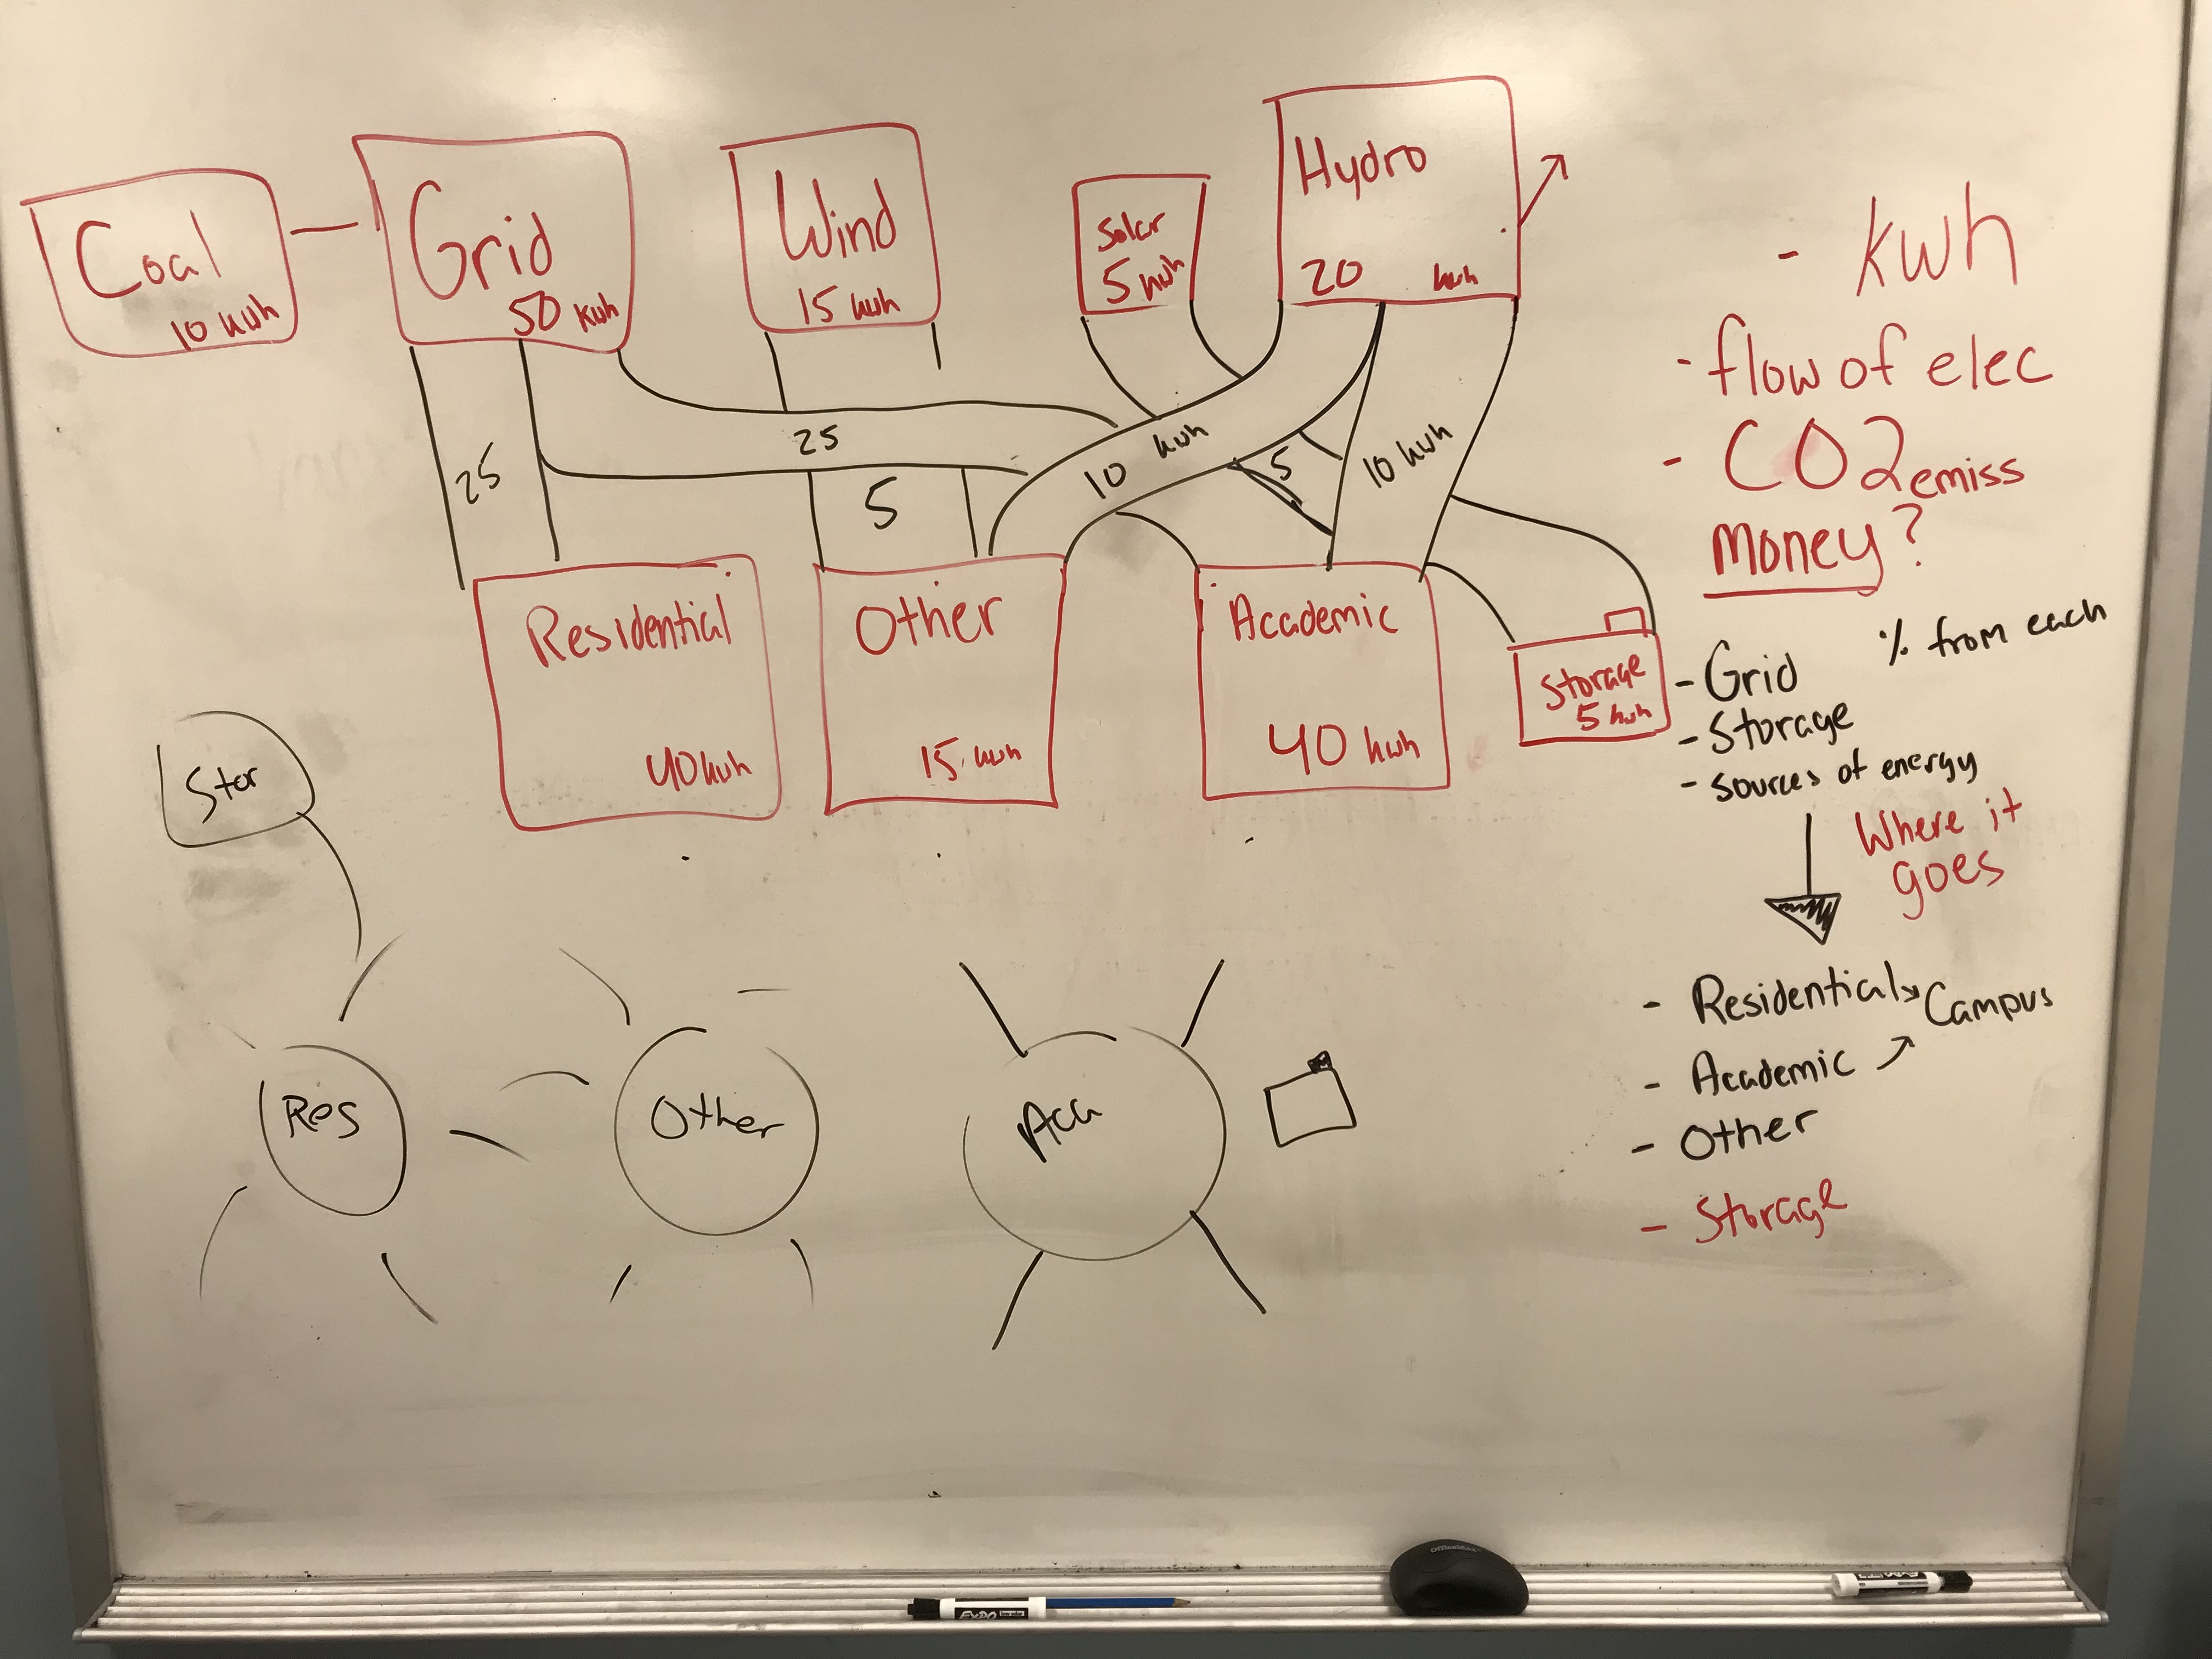 Coal
10 kwh
Grid
50 kwh
Wind
15 kwh
Solar
5 kwh
Hydro
20 kwh
25
25
5
10 kwh
5
10 kwh
Residential
40 kwh
Other
15 kwh
Academic
40 kwh
Storage
5 kwh
- kwh
- flow of elec
- CO2 emiss
money?
% from each
- Grid
- Storage
- Sources of energy
Where it
goes
- Residential
Campus
- Academic
- Other
- Storage
Stor
Res
Other
Aca
OfficeMax
EXPO